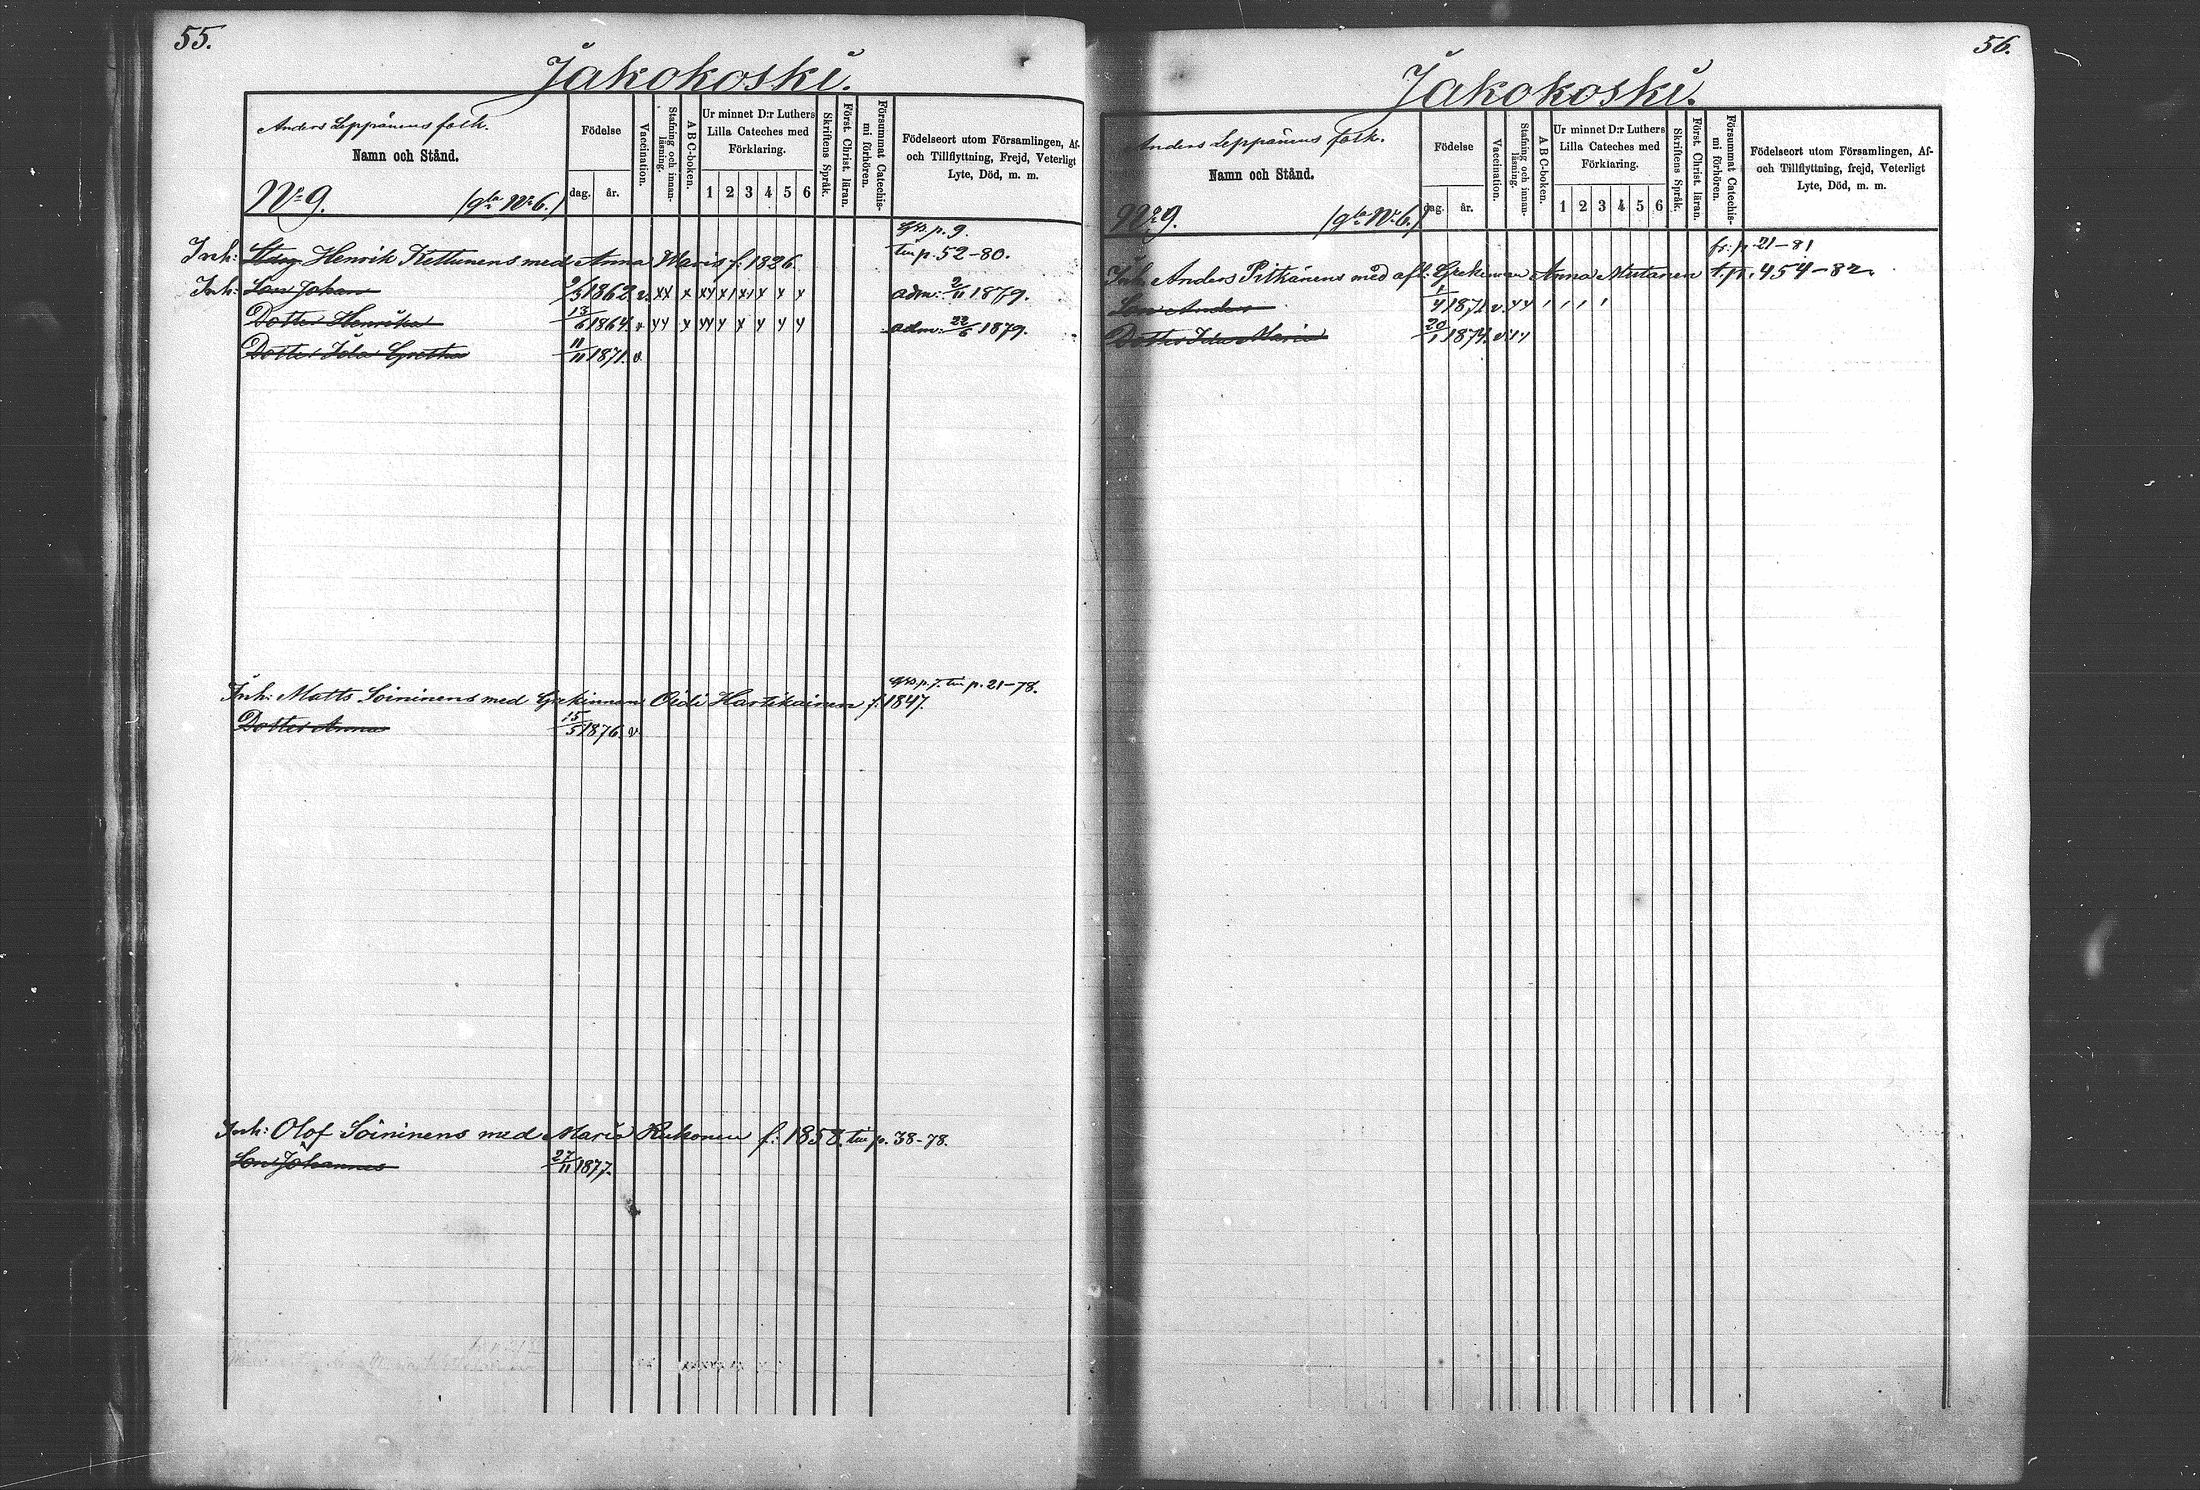 55.
Jakokoski.
Anders Leppänens folk.
Namn och Stånd.
No 9.
(gla No 6.)
Födelse
dag.
år.
Vaccination.
Stafning och innan-läsning.
A B C-boken.
Ur minnet D:r Luthers
Lilla Cateches med
Förklaring.
1 2 3 4 5 6
Skriftens Språk.
Först. Christ. läran.
Försummat Catechis-
mi förhören.
Födelseort utom Församlingen, Af-
och Tillflyttning, Frejd, Veterligt
Lyte, Död, m. m.
p. 9.
Inh: Henrik Kettunens med Anna Waris f: 1826 p. 52-80.
Inh: Son Johan 2/3 1862 v. xx x xx x x x x x adm: 2/11 1879.
Dotter Henrika 13/6 1864 v xx x xx x x x x x adm: 22/6 1879.
Dotter Ida Gretha 11/11 1871. v.
p. 7. p. 21-78.
Inh: Matts Soininens med Grekinnan Oidi Hartikainen f: 1847.
Dotter Anna 15/5 1876. v.
Inh: Olof Soininens med Maria f: 1858. p. 38-78.
Son Johannes 27/11 1877.
56.
Jakokoski.
Anders Leppänens folk.
Namn och Stånd.
No 9.
(gla No 6.)
Födelse
dag.
år.
Vaccination.
Stafning och innan-
läsning.
A B C-boken.
Ur minnet D:r Luthers
Lilla Cateches med
Förklaring.
1 2 3 4 5 6
Skriftens Språk.
Först. Christ. läran.
Försummat Catechis-
mi förhören.
Födelseort utom Församlingen, Af-
och Tillflyttning, frejd, Veterligt
Lyte, Död, m. m.
fr: p. 21-81
Inh Anders Pitkänens med afl: Grekinnan Anna Mustonen t. p. 454-82.
Son Anders 1/4 1871. v. xx
Dotter Ida Maria 20/1 1874. v. xx